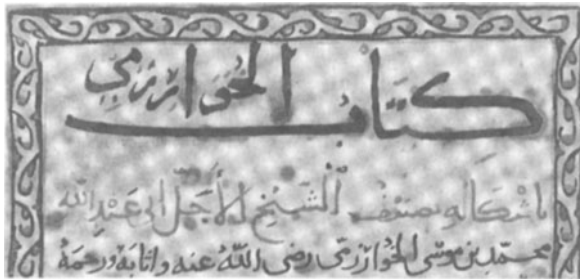 كتاب الخوارزمي
باشكاله وتصنيف الشيخ الأجل ابي عبد الله
محمد بن موسى الخوارزمي رضى الله عنه واثابه ورحمه